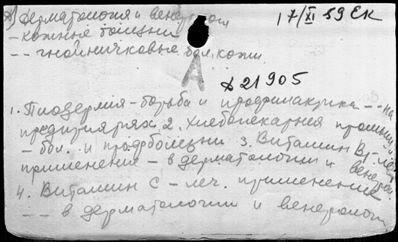 А) Дерматология и венерологи 17/XI 59 ЕК
- кожные болезни
- - гнойничковые бол. кожи
А
Д 21905
1. Пиодермия - борьба и профилактика - - на
предприятиях 2. Хлебопекарная промышл
- бол. и профболезни 3. Витамин В1 - леч.
применение - в дерматологии и венерол.
4. Витамин С - леч. применение
- - в дерматологии и венерологи